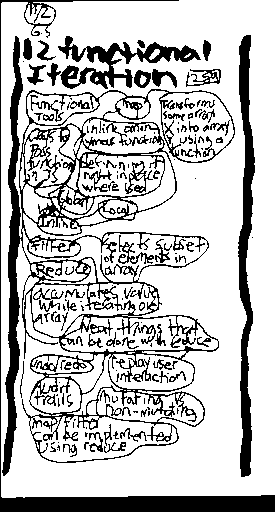 12 functional
Iteration 259
Functional
Tools
map
Transforms
some array
X into array
using a
function
Ways to
Pass
function
in JS
inline anon
ymous function
Defining it
right in place
where used
Global
Local
Inline
Filter
Selects subset
of elements in
array
Reduce
Accumulates value
while iterating over
Array
Neat things that
can be done with reduce
undo/redo
replay user
interaction
Audit
trails
mutating vs
non-mutating
map/filter
can be implemented
using reduce